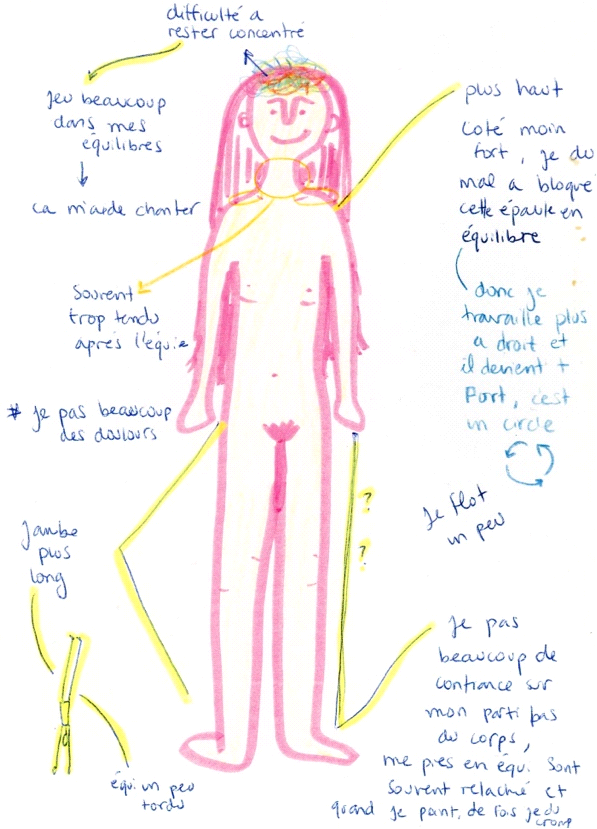 difficulté a
rester concentré
jeu beaucoup
dans mes
équilibres
ca m'aide chanter
Souvent
trop tendu
après l'équie
* je pas beaucoup
des doulours
Jambe
plus
long
équi un peu
tordu
plus haut
coté moin
fort, je du
mal a bloque
cette épaule en
équilibre
donc je
travaille plus
a droit et
il devient +
Fort, c'est
un circle
je flot
un peu
?
?
je pas
beaucoup de
confiance sur
mon parti bas
du corps,
me pies en équi. Sont
souvent relaché et
quand je point, de fois je du
cramp